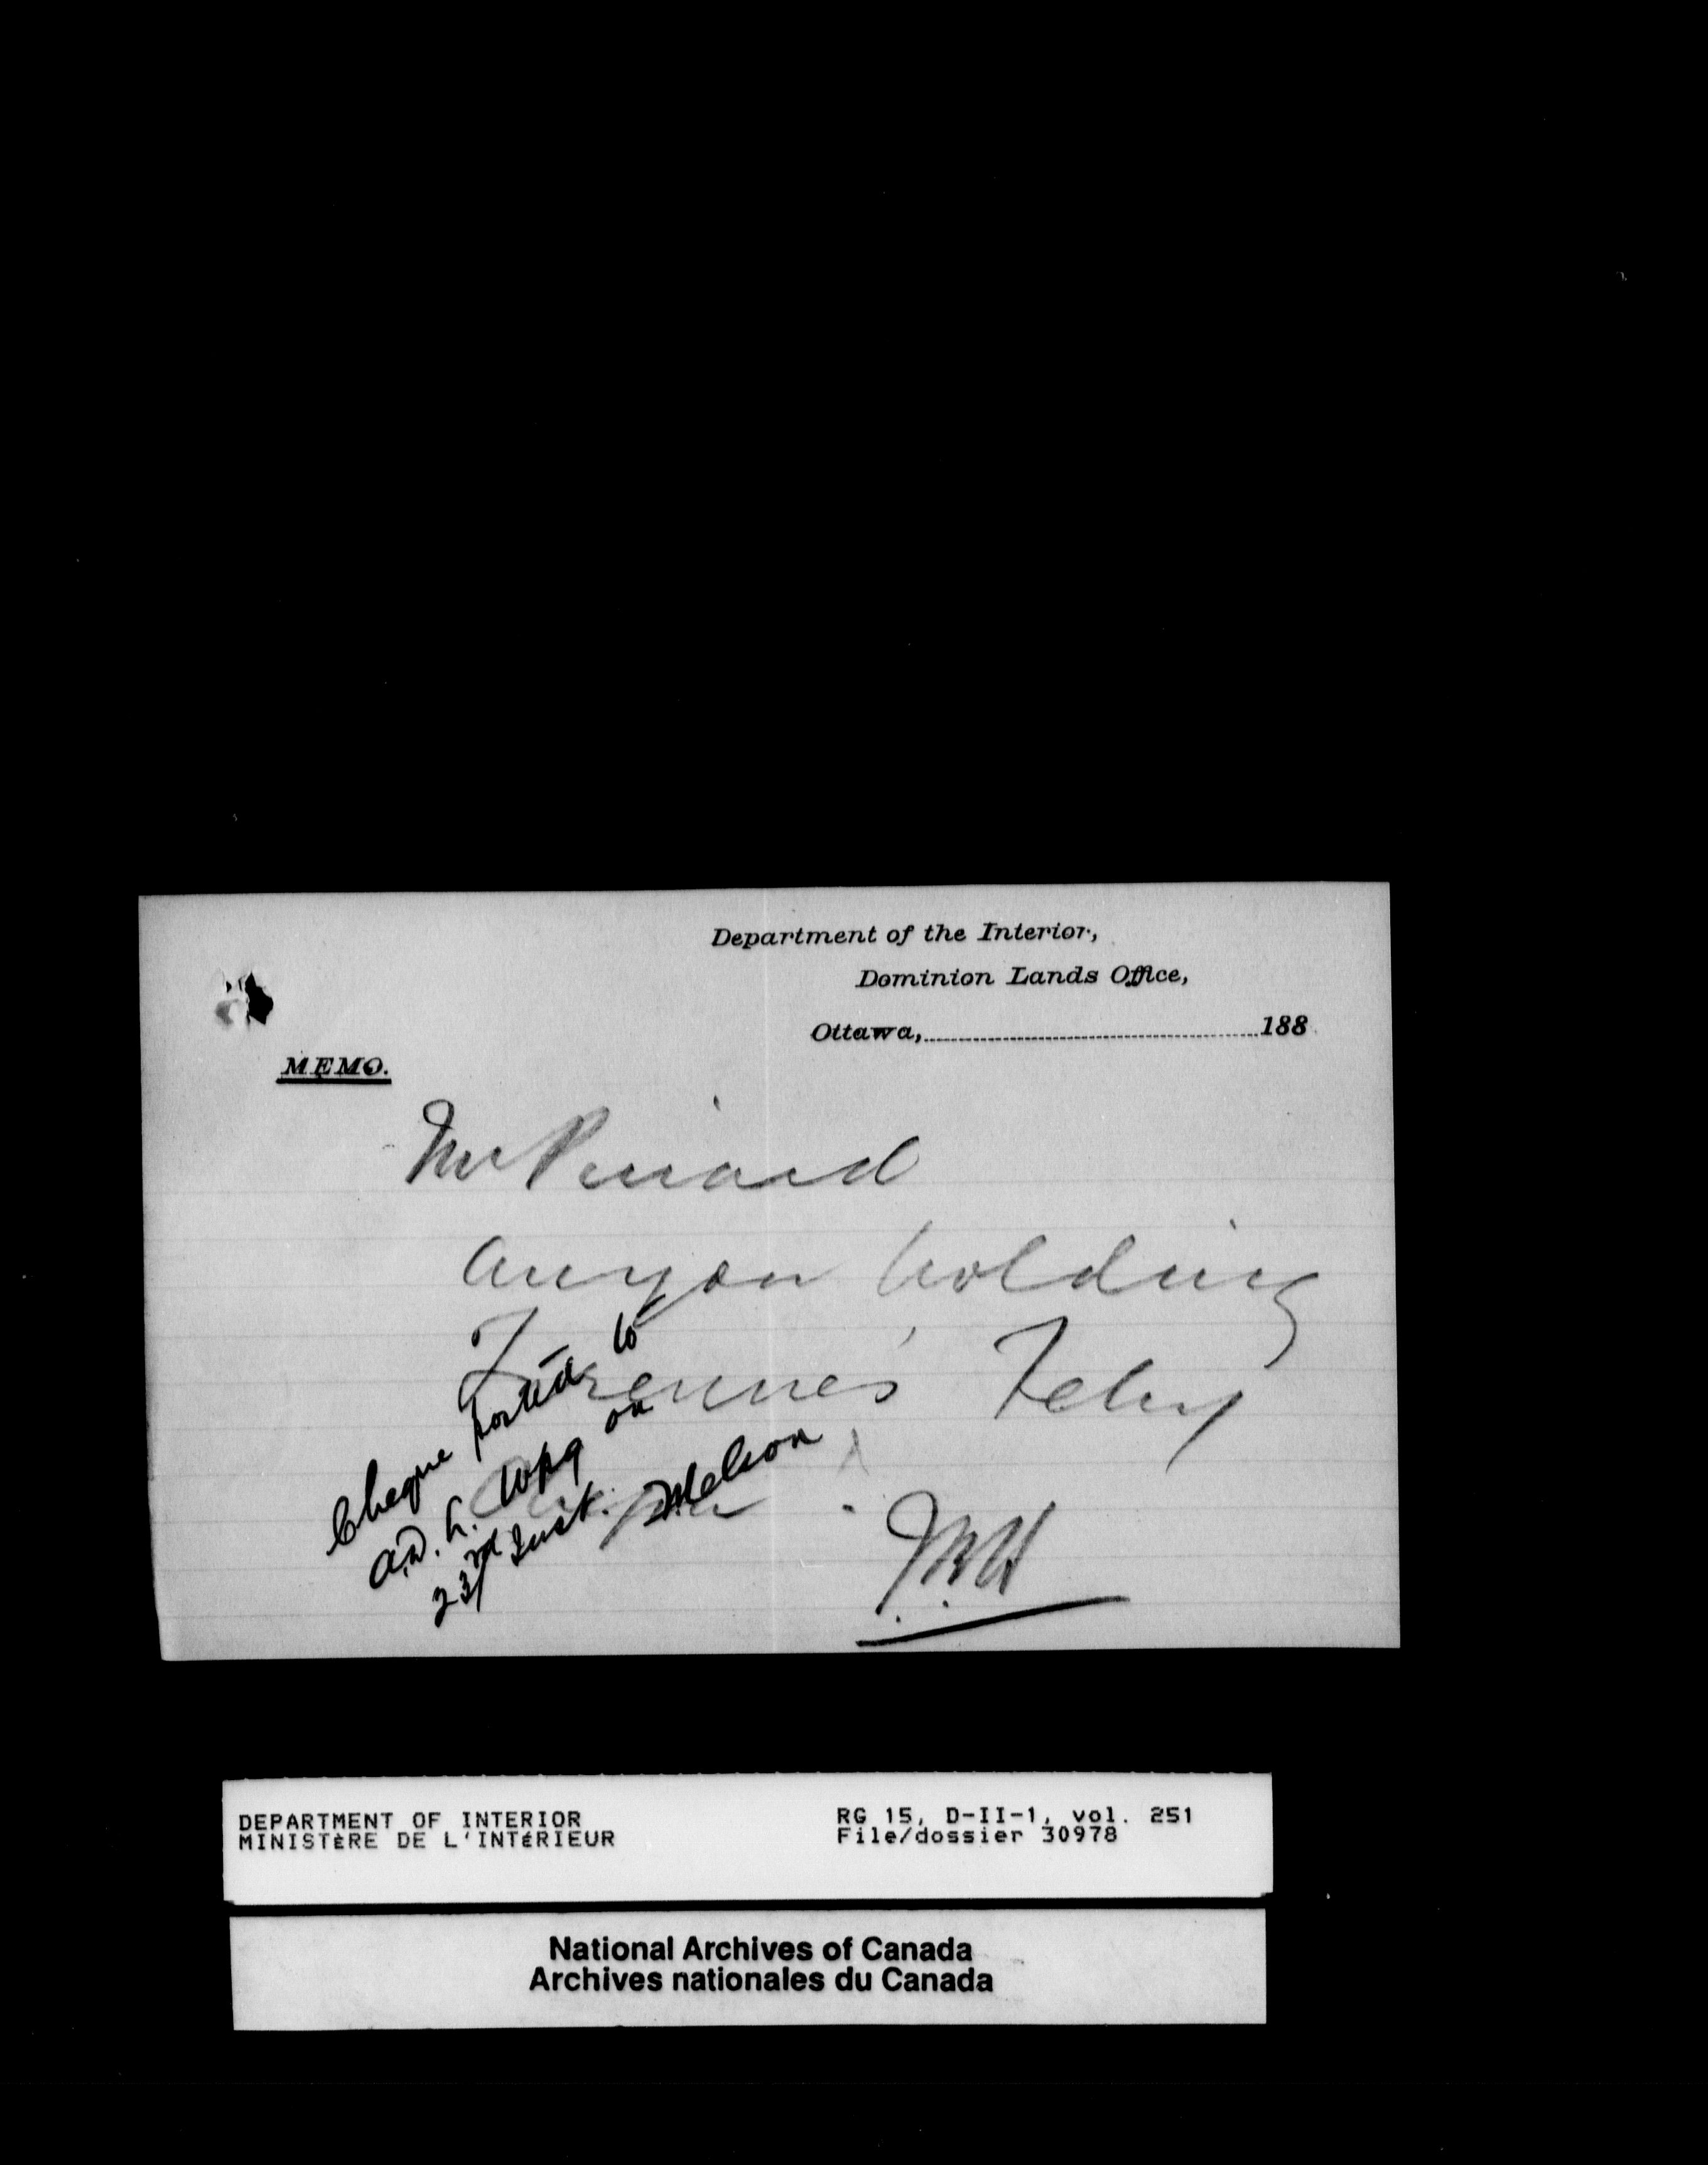 Department of the Interior,
Dominion Lands Office,
Ottawa,..........188
MEMO.
Mr Pinard
Are you holding
Turenne's Feby
Cheque posted to
A.D.L. Wpg on
23rd Inst.
JMH
DEPARTMENT OF INTERIOR
MINISTÈRE DE L'INTÉRIEUR
RG 15, D-II-1, vol. 251
File/dossier 30978
National Archives of Canada
Archives nationales du Canada